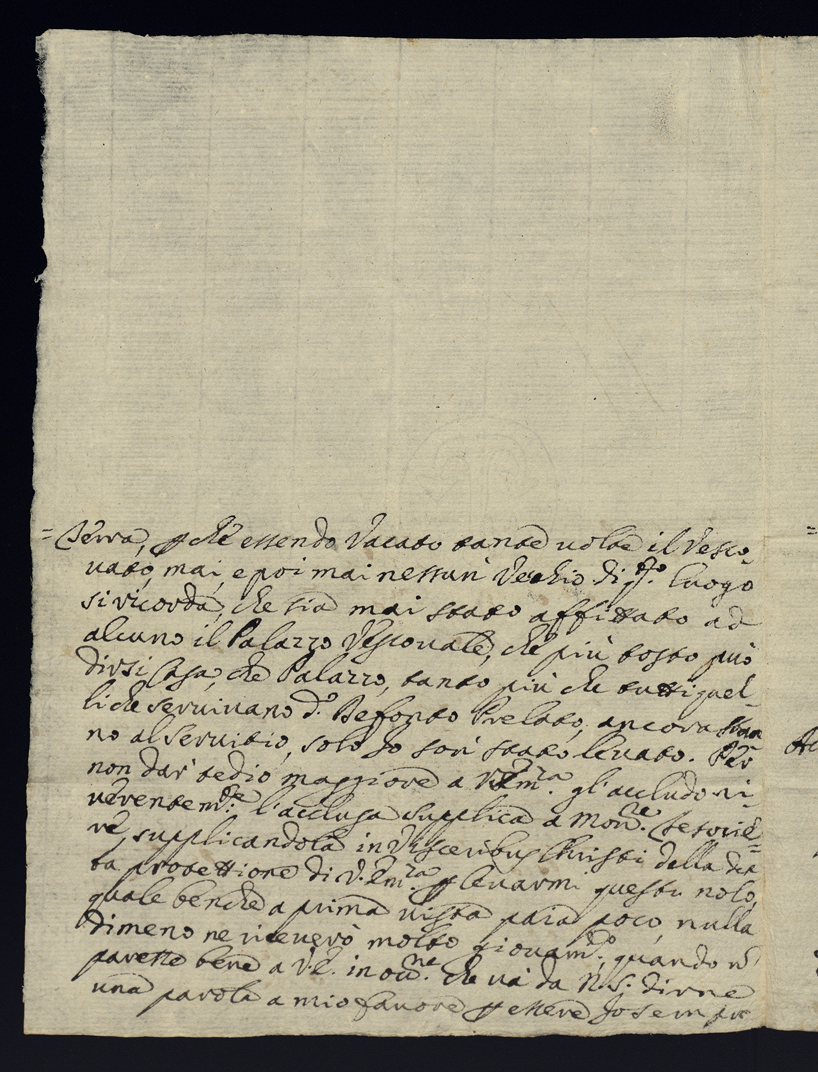 = Terra, p che essendo Vacato tante volte il Vesco,
vato, mai, e poi mai nessun' Vechio di q.to luogo
si ricorda, che sia mai stato affittato ad
alcuno il Palazzo Vescovale, che più tosto può
dirsi Casa, che Palazzo, tanto più che tutti quel-
li che servivano d.o Defonto Prelato, ancora stan
no al Servitio, solo Io son' stato levato. Per
non dar' tedio maggiore a V. Em.za gl'accludo ri-
verentem.te l'acclusa supplica a Mon.re Tesorie=
re, supplicandola in Visceribus Christi della
ta protettione di V. Em.za p levarmi questo nolo,
quale benche a prima vista paia poco, nulla
dimeno ne riceverò molto giovam.to, quando n'
paresse bene a V. E. in occ.ne che và da N. S. dirne
una parola a mio favore p essere Io sempre
=